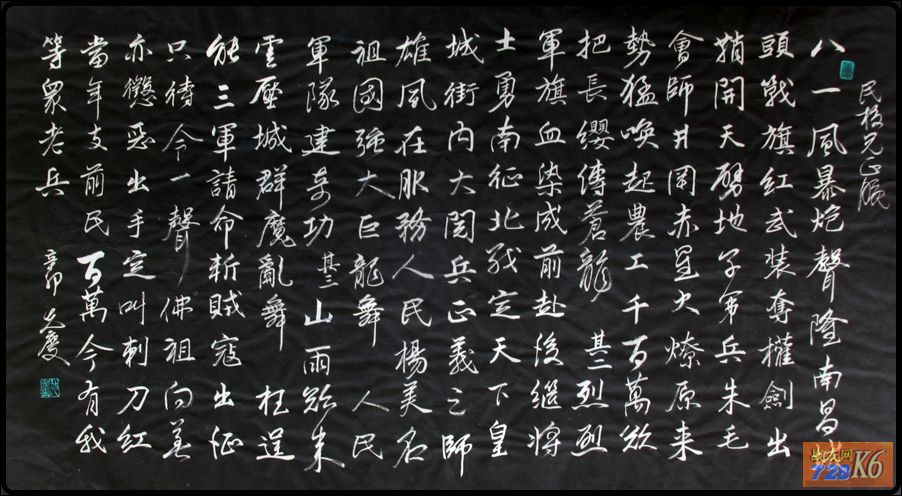 民兄正腕
八一風暴炮聲隆南昌城
頭戰旗紅武裝奪權劍出
鞘開天劈地子弟兵朱毛
會師井岡赤星火燎原来
勢猛喚起農工千百萬欲
把長缨傳蒼龍 其二 烈烈
軍旗血染成前赴後继將
士勇南征北战定天下皇
城街内大閲兵正義之師
雄風在服務人民楊美名
祖國强大巨龍舞 人民
軍隊建奇功 其三 山雨欲来
雲壓城群魔亂舞 枉逞
能三軍請命斬賊寇出征
只待令一聲 佛祖向善
亦懲惡出手定叫刺刀紅
當年支前民百萬今有我
等眾老兵 辛卯
728 K6